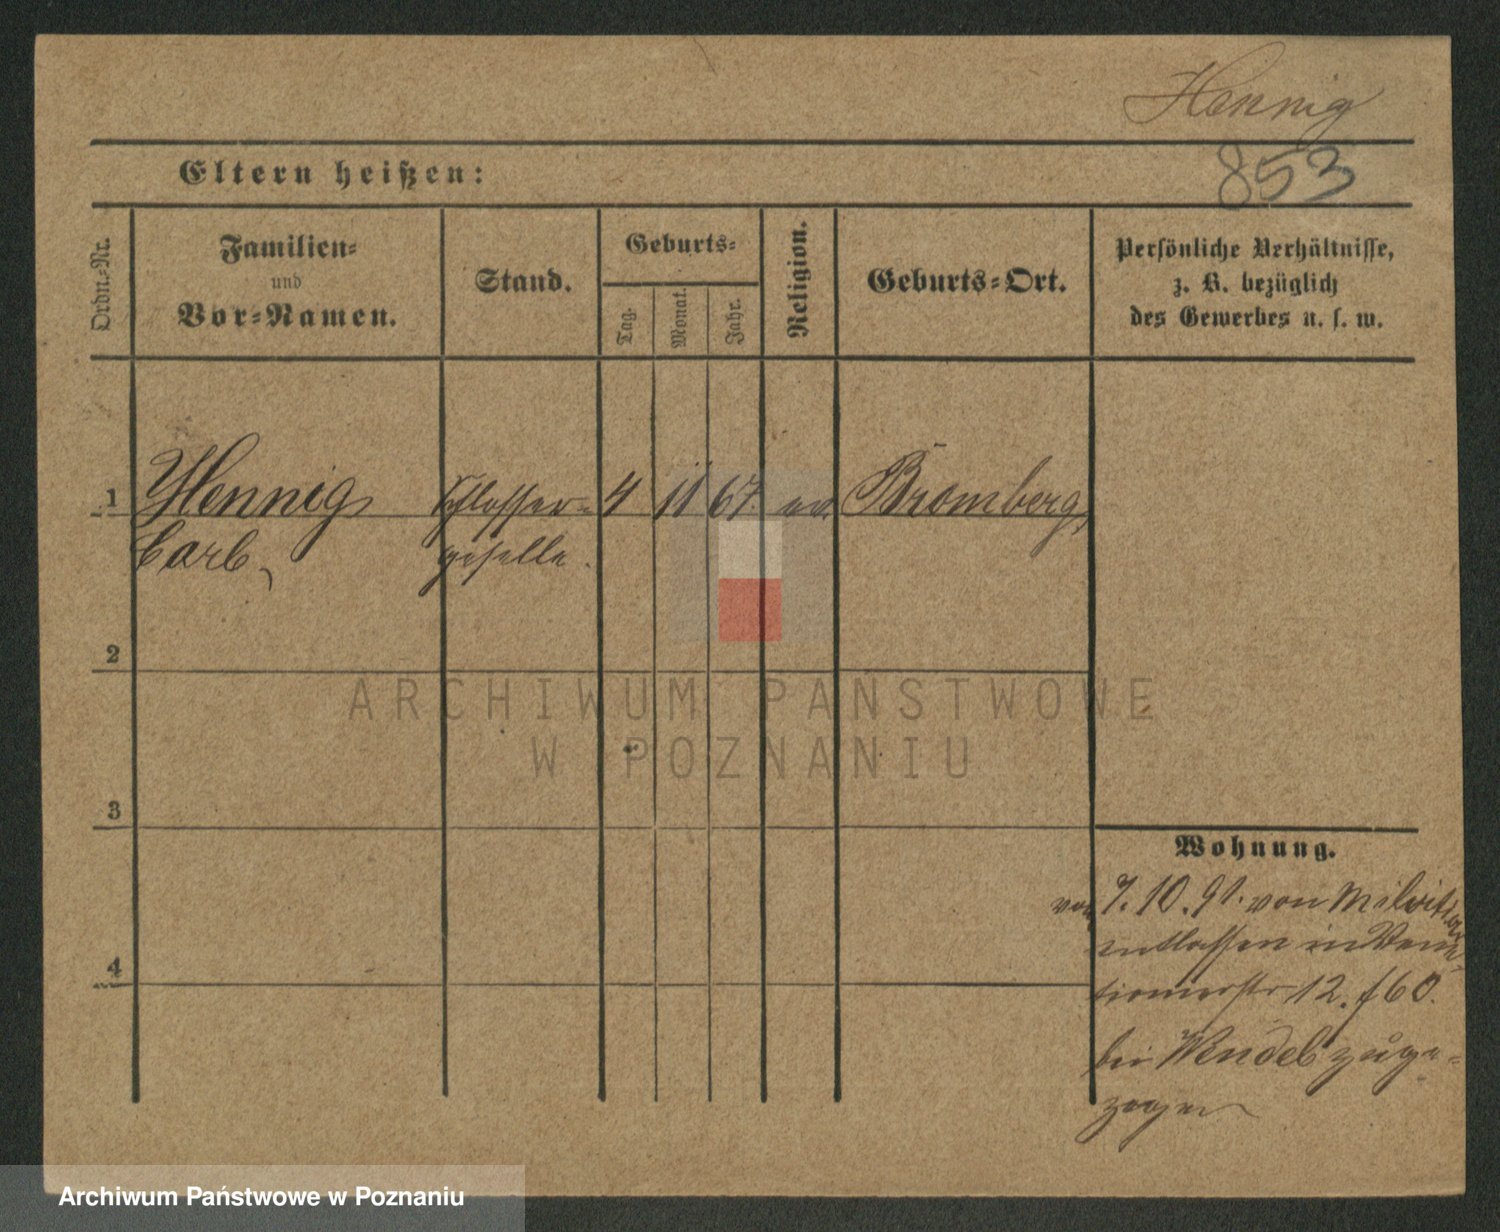 Hennig
853
Eltern heißen:
Ordn.-Nr.
Familien-
und
Vor-Namen.
Stand.
Geburts-
Tag.
Monat.
Jahr.
Religion.
Geburts-Ort.
Persönliche Verhältnisse,
z. B. bezüglich
des Gewerbes u. s. w.
1
Hennig Schlosser- 4 11 67. ev. Bromberg
Carl geselle.
2
ARCHIWUM PAŃSTWOWE
W POZNANIU
3
Wohnung.
7. 10. 91. von Militär
entlassen in
12. f 60.
bei Wendel zuge-
zogen
4
Archiwum Państwowe w Poznaniu